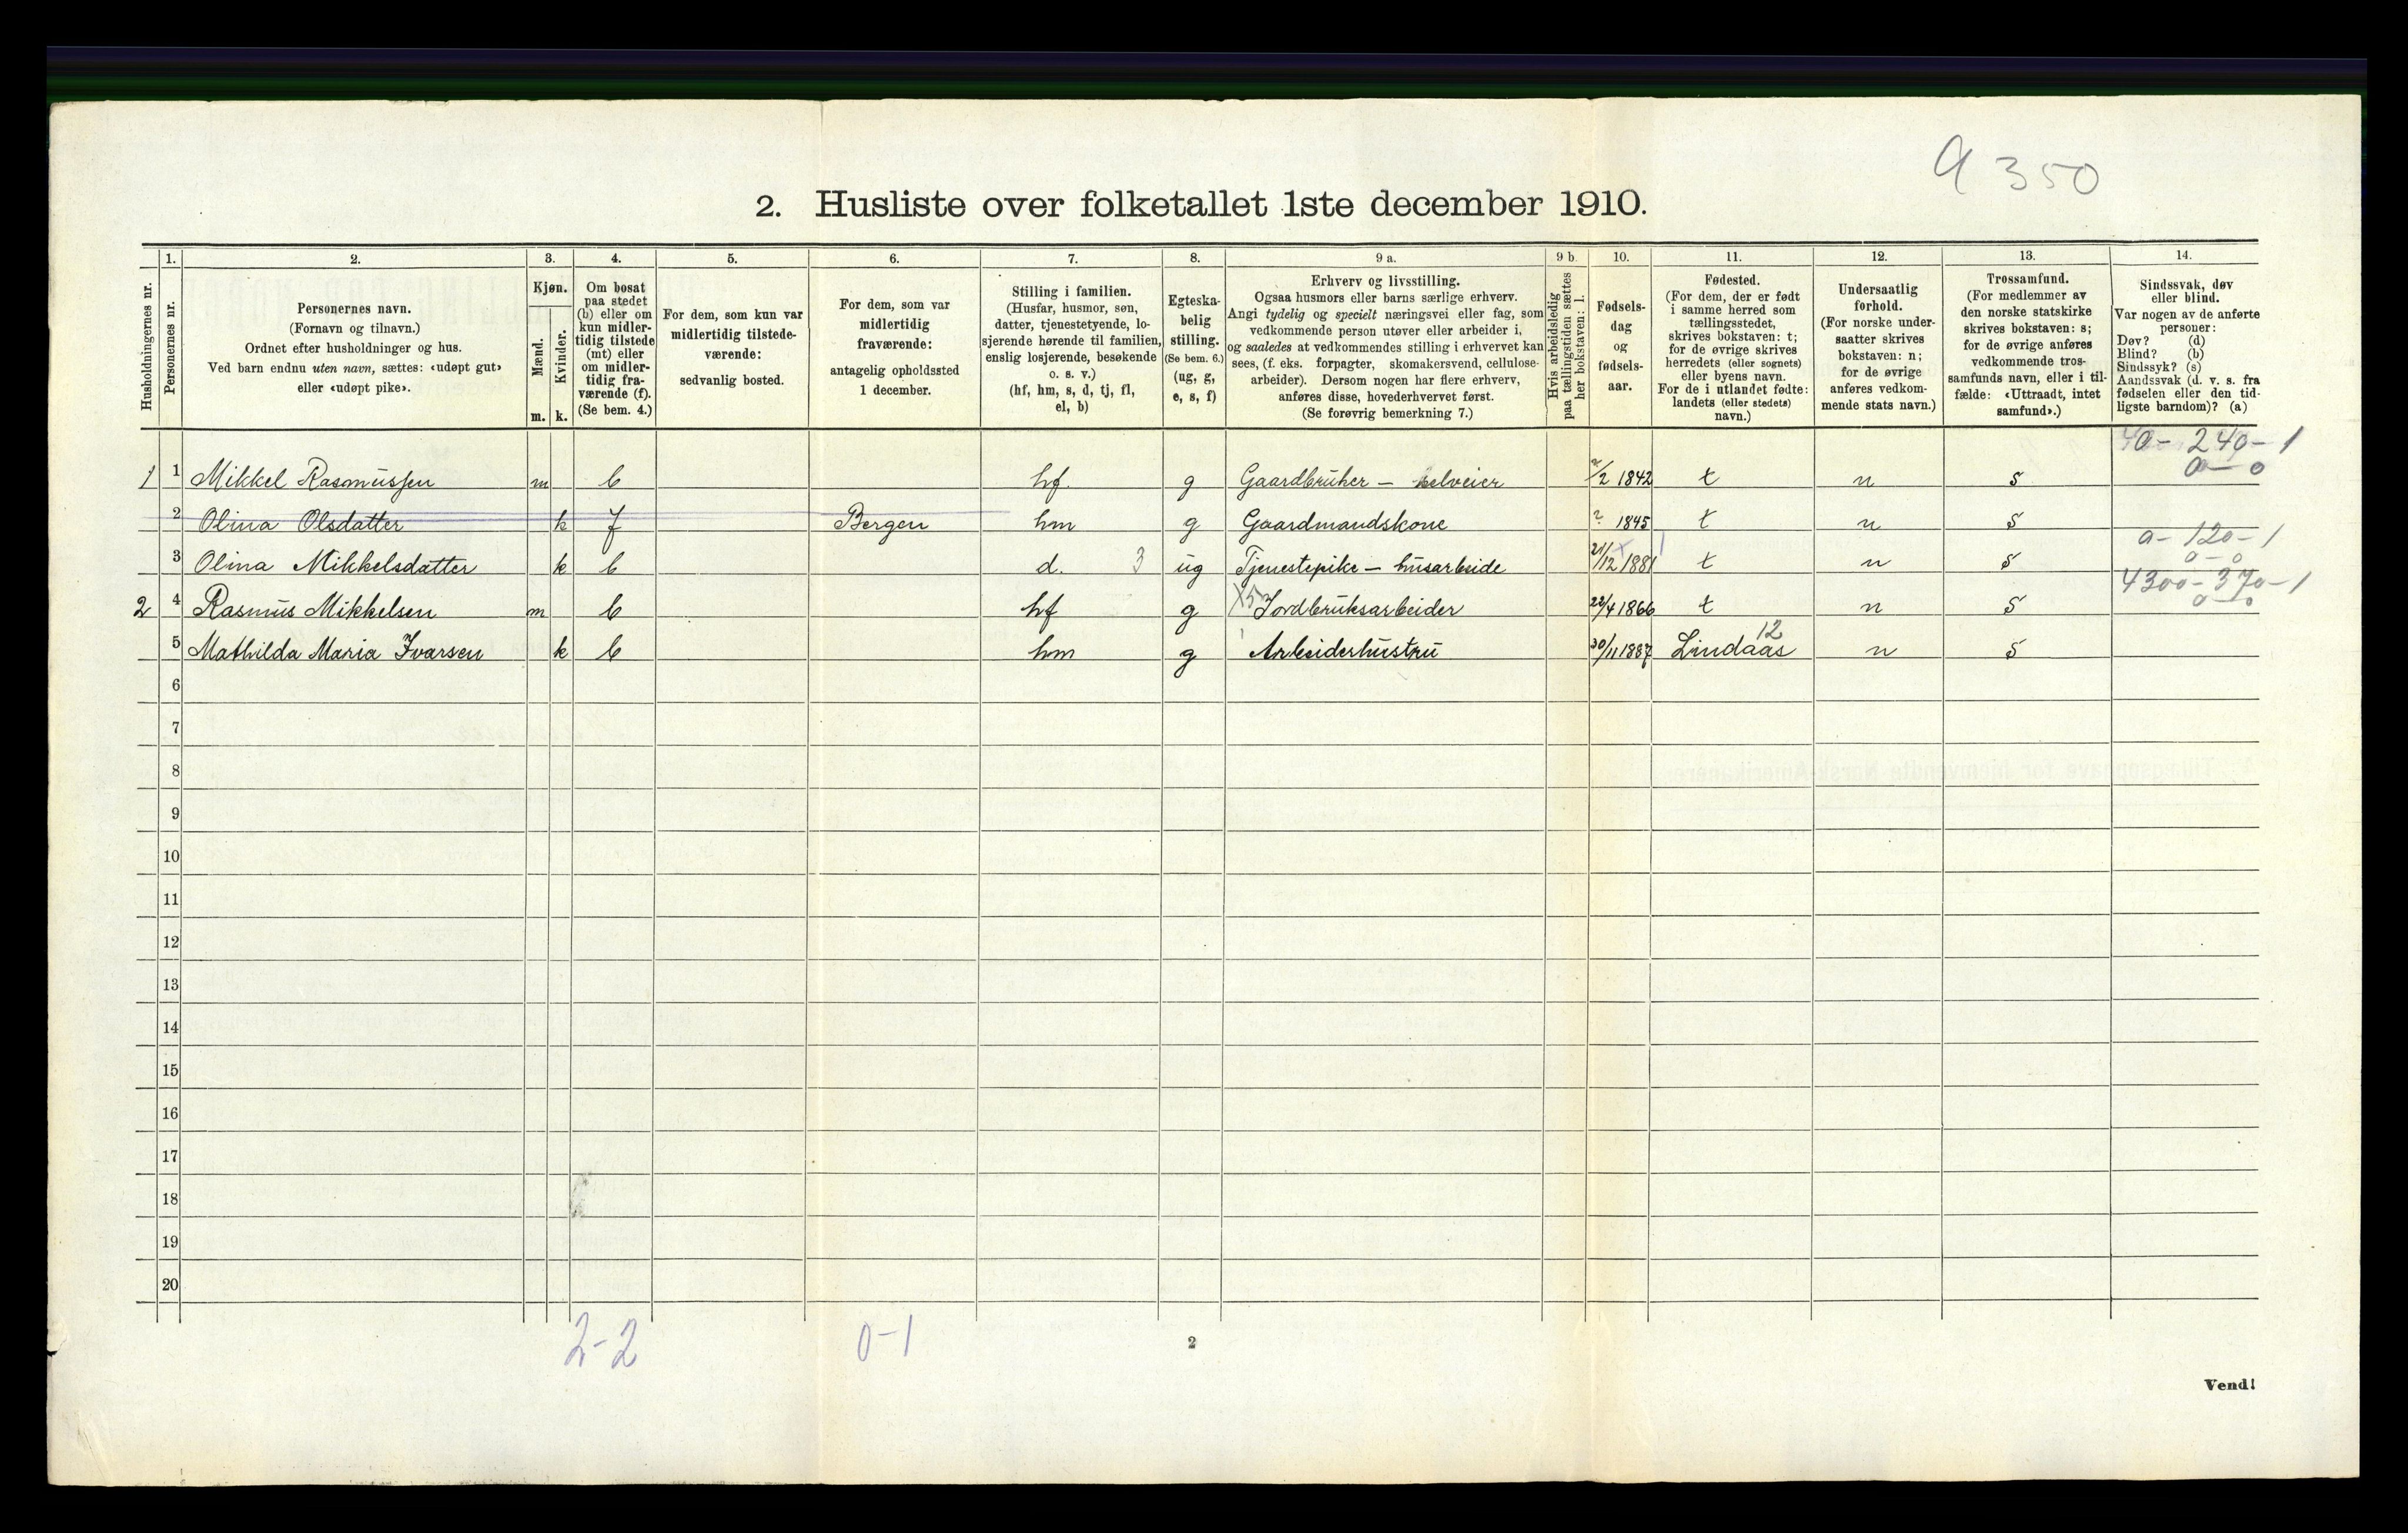 9 350
2. Husliste over folketallet 1ste december 1910.
Husholdningernes nr.
1.
Personernes nr.
2.
Personernes navn.
(Fornavn og tilnavn.)
Ordnet efter husholdninger og hus.
Ved barn endnu uten navn, sættes: «udøpt gut»
eller «udøpt pike».
3.
Kjøn.
Mænd.
Kvinder.
m. k.
4.
Om bosat
paa stedet
(b) eller om
kun midler-
tidig tilstede
(mt) eller
om midler-
tidig fra-
værende (f).
(Se bem. 4.)
5.
For dem, som kun var
midlertidig tilstede-
værende:
sedvanlig bosted.
6.
For dem, som var
midlertidig
fraværende:
antagelig opholdssted
1 december.
7.
Stilling i familien.
(Husfar, husmor, søn,
datter, tjenestetyende, lo-
sjerende hørende til familien,
enslig losjerende, besøkende
o. s. v.)
(hf, hm, s, d, tj, fl,
el, b)
8.
Egteska-
belig
stilling.
(Se bem. 6.)
(ug, g,
e, s, f)
9 a.
Erhverv og livsstilling.
Ogsaa husmors eller barns særlige erhverv.
Angi tydelig og specielt næringsvei eller fag, som
vedkommende person utøver eller arbeider i,
og saaledes at vedkommendes stilling i erhvervet kan
sees, (f. eks. forpagter, skomakersvend, cellulose-
arbeider). Dersom nogen har flere erhverv,
anføres disse, hovederhvervet først.
(Se forøvrig bemerkning 7.)
9 b.
Hvis arbeidsledig
paa tællingstiden sættes
her bokstaven: l.
10.
Fødsels-
dag
og
fødsels-
aar.
11.
Fødested.
(For dem, der er født
i samme herred som
tællingsstedet,
skrives bokstaven: t;
for de øvrige skrives
herredets (eller sognets)
eller byens navn.
For de i utlandet fødte:
landets (eller stedets)
navn.)
12.
Undersaatlig
forhold.
(For norske under-
saatter skrives
bokstaven: n;
for de øvrige
anføres vedkom-
mende stats navn.)
13.
Trossamfund.
(For medlemmer av
den norske statskirke
skrives bokstaven: s;
for de øvrige anføres
vedkommende tros-
samfunds navn, eller i til-
fælde: «Uttraadt, intet
samfund».)
14.
Sindssvak, døv
eller blind.
Var nogen av de anførte
personer:
Døv? (d)
Blind? (b)
Sindssyk? (s)
Aandssvak (d. v. s. fra
fødselen eller den tid-
ligste barndom)? (a)
1 1 Mikkel Rasmussen m b hf. g Gaardbruker – selveier /2 1842 t n s 240-1
0-0
2 Olina Olsdatter k f Bergen hm g Gaardmandskone ? 1845 t n s
3 Olina Mikkelsdatter k b d. 3 ug Tjenestepike – husarbeide 21/12 1881 t n s a-120-1
0-0
2 4 Rasmus Mikkelsen m b hf g X5 Jordbruksarbeider 22/4 1866 t n s 4300-370-1
0-0
5 Mathilda Maria Ivarsen k b hm g Arbeiderhustru 30/11 1887 Lindaas 12 n s
6
7
8
9
10
11
12
13
14
15
16
17
18
19
20
2-2 0-1
2
Vend!